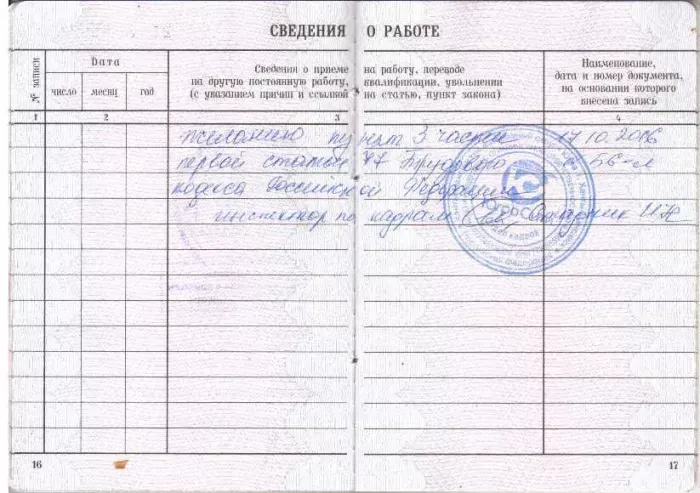 СВЕДЕНИЯ О РАБОТЕ
№ записи
Дата
число месяц год
Сведения о приеме на работу, переводе
на другую постоянную работу, квалификации, увольнении
(с указанием причин и ссылкой на статью, пункт закона)
Наименование,
дата и номер документа,
на основании которого
внесена запись
1 2 3 4
желанию пункт 3 части 17.10.2006
первой статьи 77 Трудового № 56-л
кодекса Российской Федерации
инспектор по кадрам
16
17